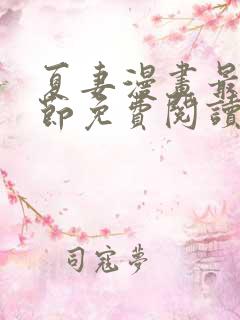 夏妻漫畫最
節免費閱讀
司寇夢